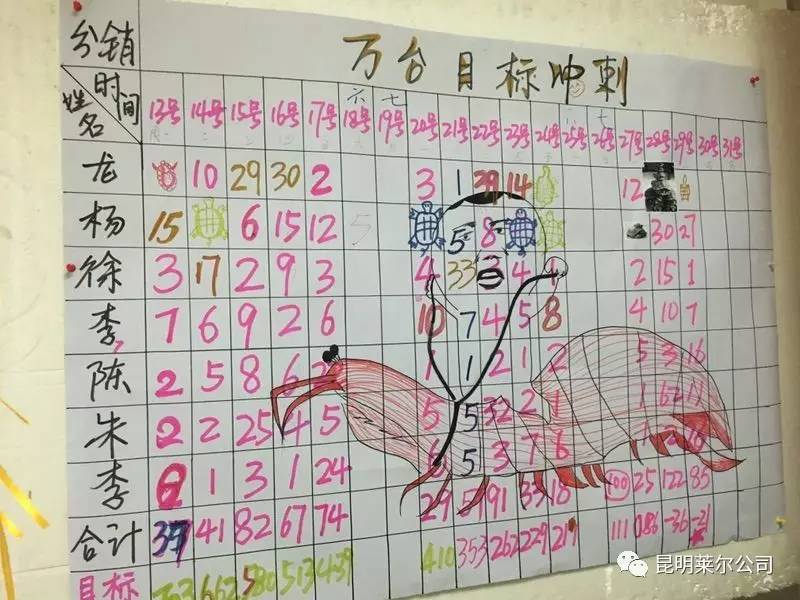 分销
万台目标冲刺
时间
姓名
13号 14号 15号 16号 17号 18号 19号 20号 21号 22号 23号 24号 25号 26号 27号 28号 29号 30号 31号
六 七
龙 10 29 30 2 3 1 39 14 12
杨 15 6 15 12 5 5 8 30 27
徐 3 17 2 9 3 4 33 3 4 1 2 15 1
李 7 6 9 2 6 10 7 4 5 8 4 10 7
陈 2 5 8 6 2 1 1 2 1 2 5 3 16
朱 2 2 25 4 5 5 5 32 2 1 1
李 1 3 1 24 6 5 3 7 6
合计 41 82 67 74 29 57 91 33 18 100 25 122 85
目标 410 353 262 229 219 111 086 -36 -21
昆明莱尔公司